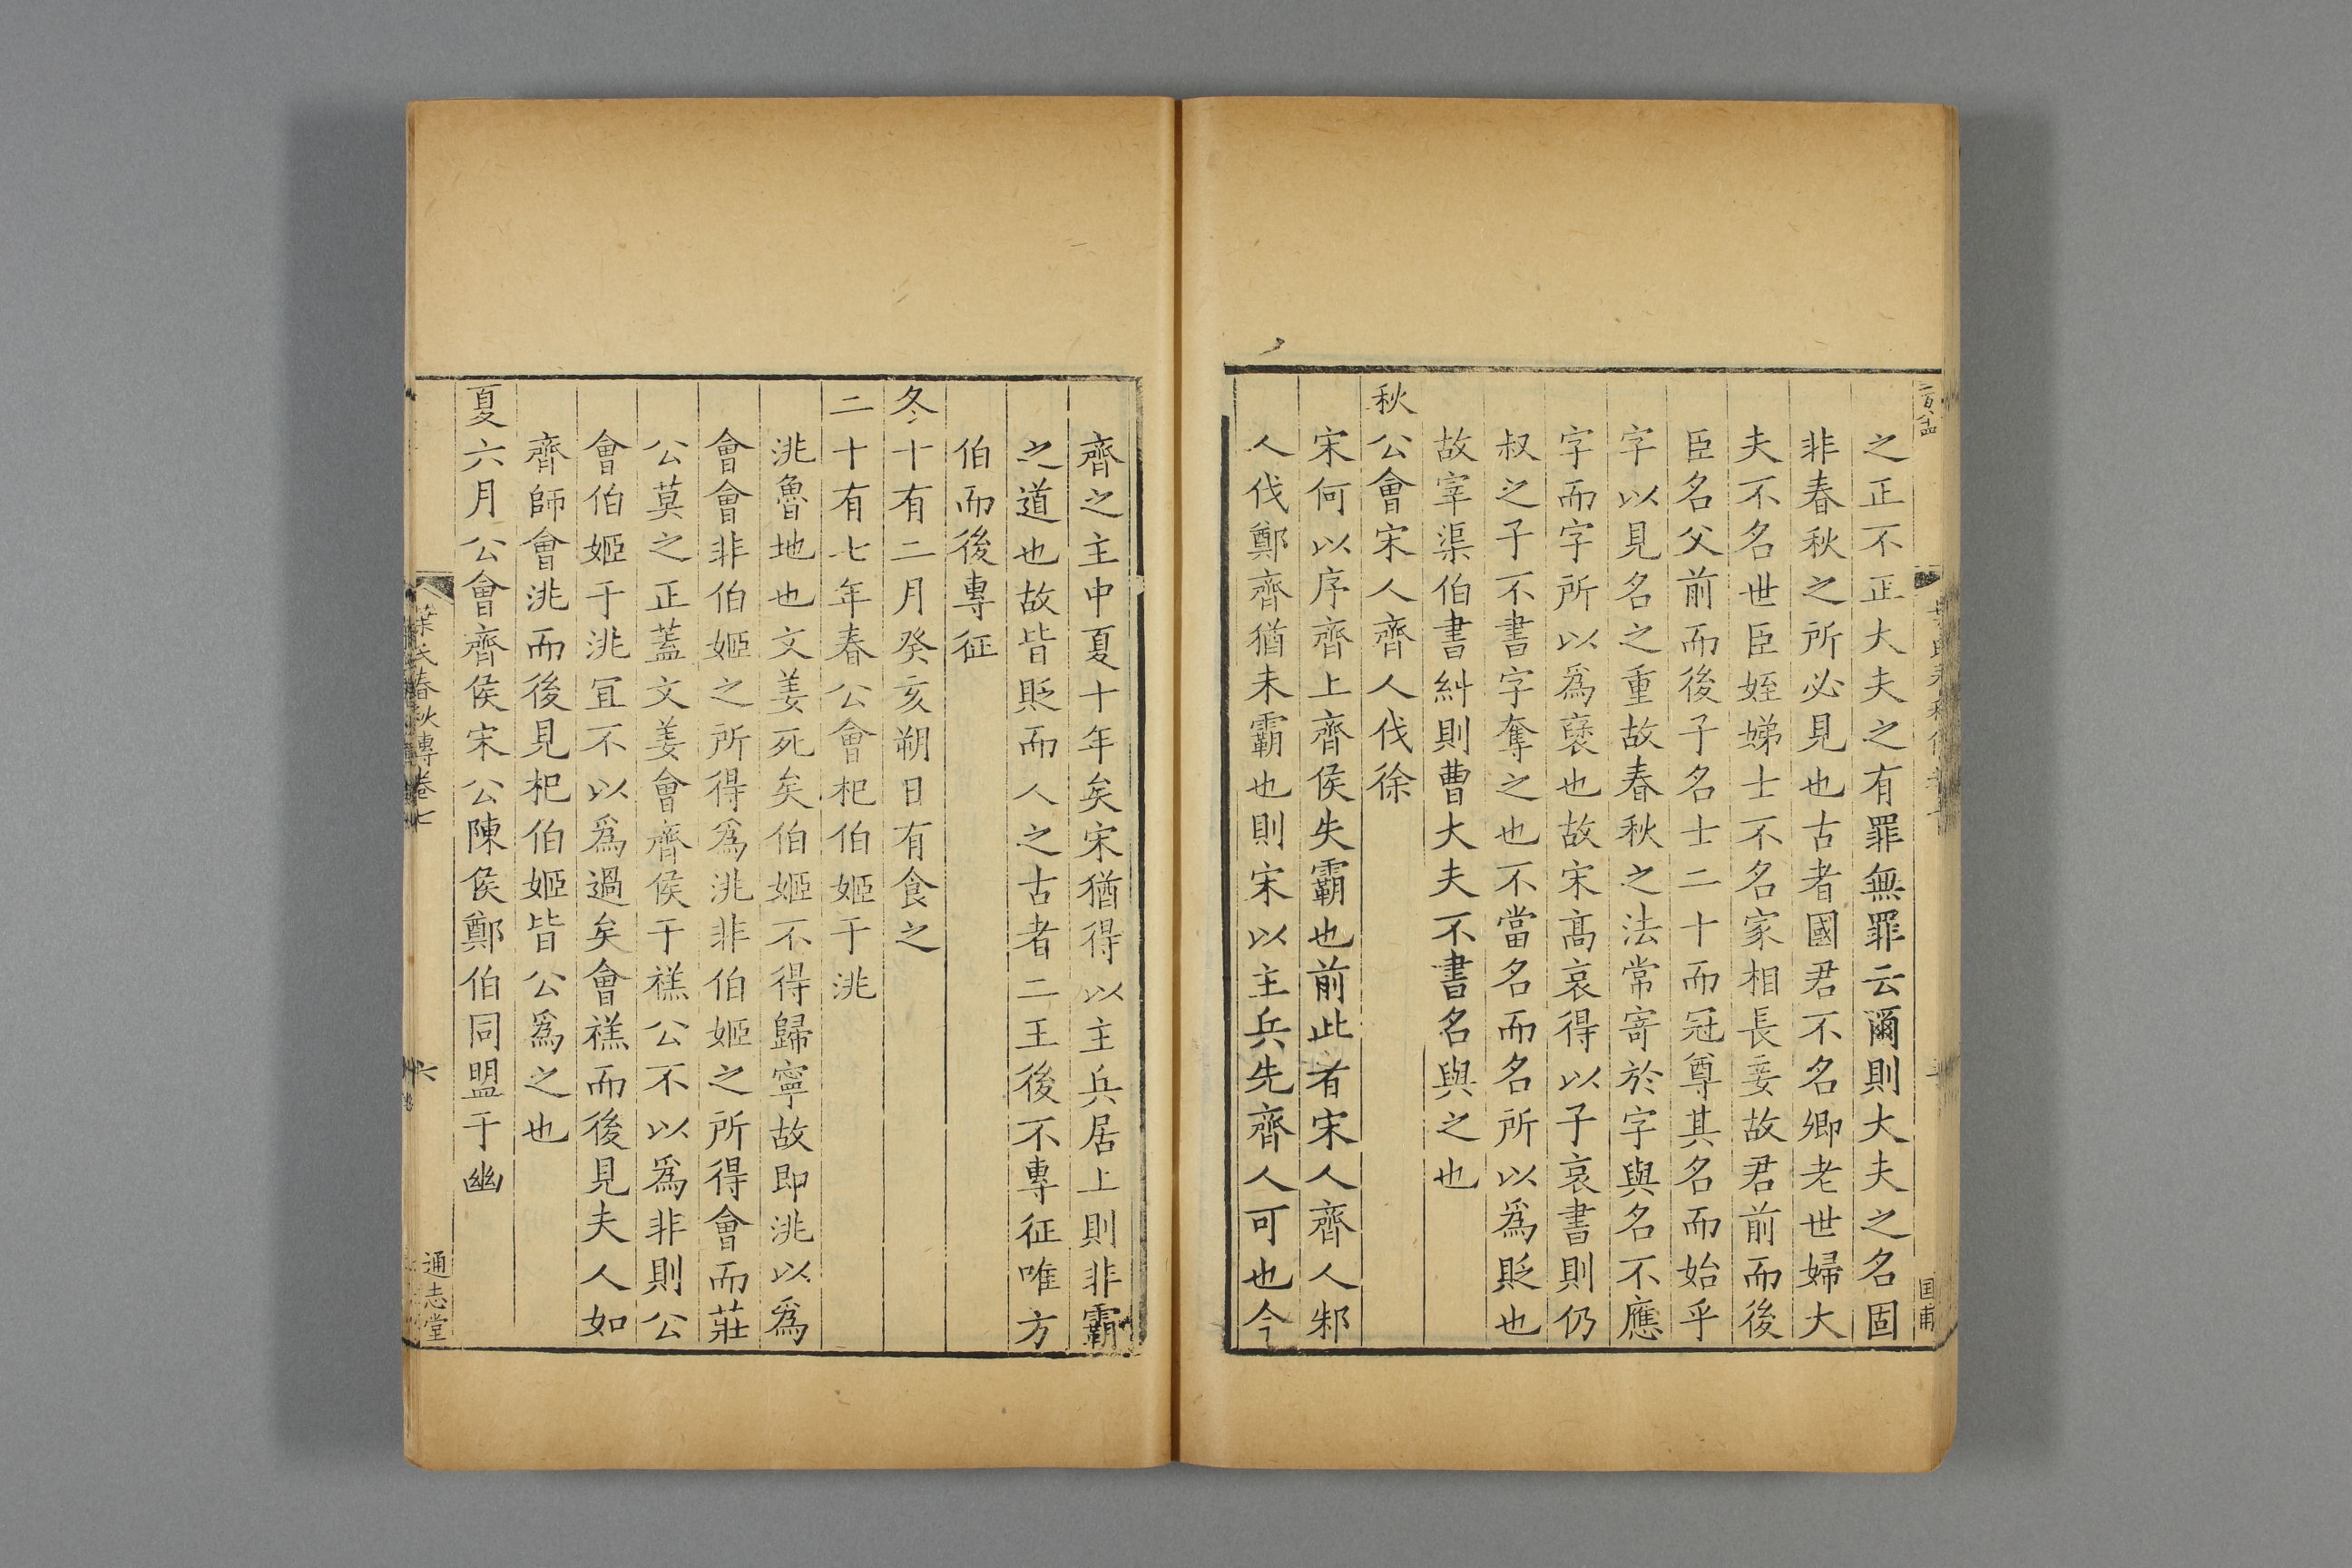 之正不正大夫之有罪無罪云爾則大夫之名固
非春秋之所必見也古者國君不名卿老世婦大
夫不名世臣姪娣士不名家相長妾故君前而後
臣名父前而後子名士二十而冠尊其名而始乎
字以見名之重故春秋之法常寄於字與名不應
字而字所以爲襃也故宋高哀得以子哀書則仍
叔之子不書字奪之也不當名而名所以爲貶也
故宰渠伯書糾則曹大夫不書名與之也
秋公會宋人齊人伐徐
宋何以序齊上齊侯失霸也前此者宋人齊人邾
人伐鄭齊猶未霸也則宋以主兵先齊人可也今
齊之主中夏十年矣宋猶得以主兵居上則非霸
之道也故皆貶而人之古者二王後不專征唯方
伯而後專征
冬十有二月癸亥朔日有食之
二十有七年春公會杞伯姬于洮
洮魯地也文姜死矣伯姬不得歸寧故即洮以爲
會會非伯姬之所得爲洮非伯姬之所得會而莊
公莫之正蓋文姜會齊侯于禚公不以爲非則公
會伯姬于洮宜不以爲過矣會禚而後見夫人如
齊師會洮而後見杞伯姬皆公爲之也
夏六月公會齊侯宋公陳侯鄭伯同盟于幽
葉氏春秋傳卷七
六
通志堂